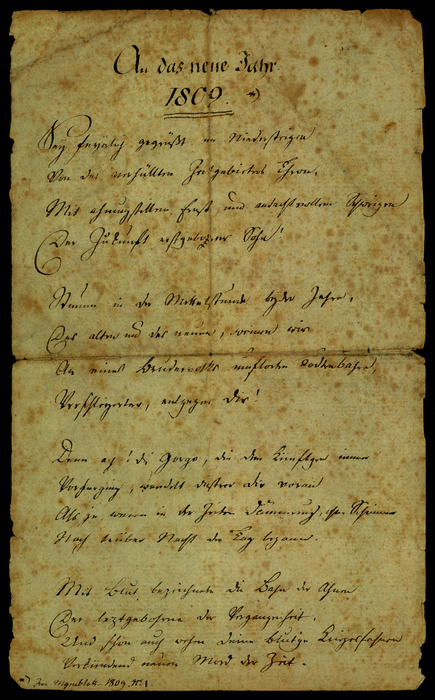 An das neue Jahr
1809. *)
Sey feyerlich gegrüßt im Niedersteigen
Von des verhüllten Zeitgebieters Thron,
Mit ahnungsvollem Ernst und andachtvollem Schweigen
Der Zukunft erstgebohrner Sohn!
Stumm in der Mittelstunde beyder Jahre,
Des alten und des neuen, wir
An eines Todtenbahre,
Verschleyerter, entgegen Dir!
Denn ach! die Gorgo, die dem Künftgen immer
Vorherging, wandelt düster dir voran
Als je, wenn in der Zeiten Dämmerung
Nach trüber Nacht der Tag begann.
Mit Blut bezeichnete die Bahn der Ahnen
Der leztgebohrne der Vergangenheit,
Und schon auch wehen deine blutgen
Verkündend neuen Mord der Zeit.
*) Im Morgenblatt. 1809. Nr. 1